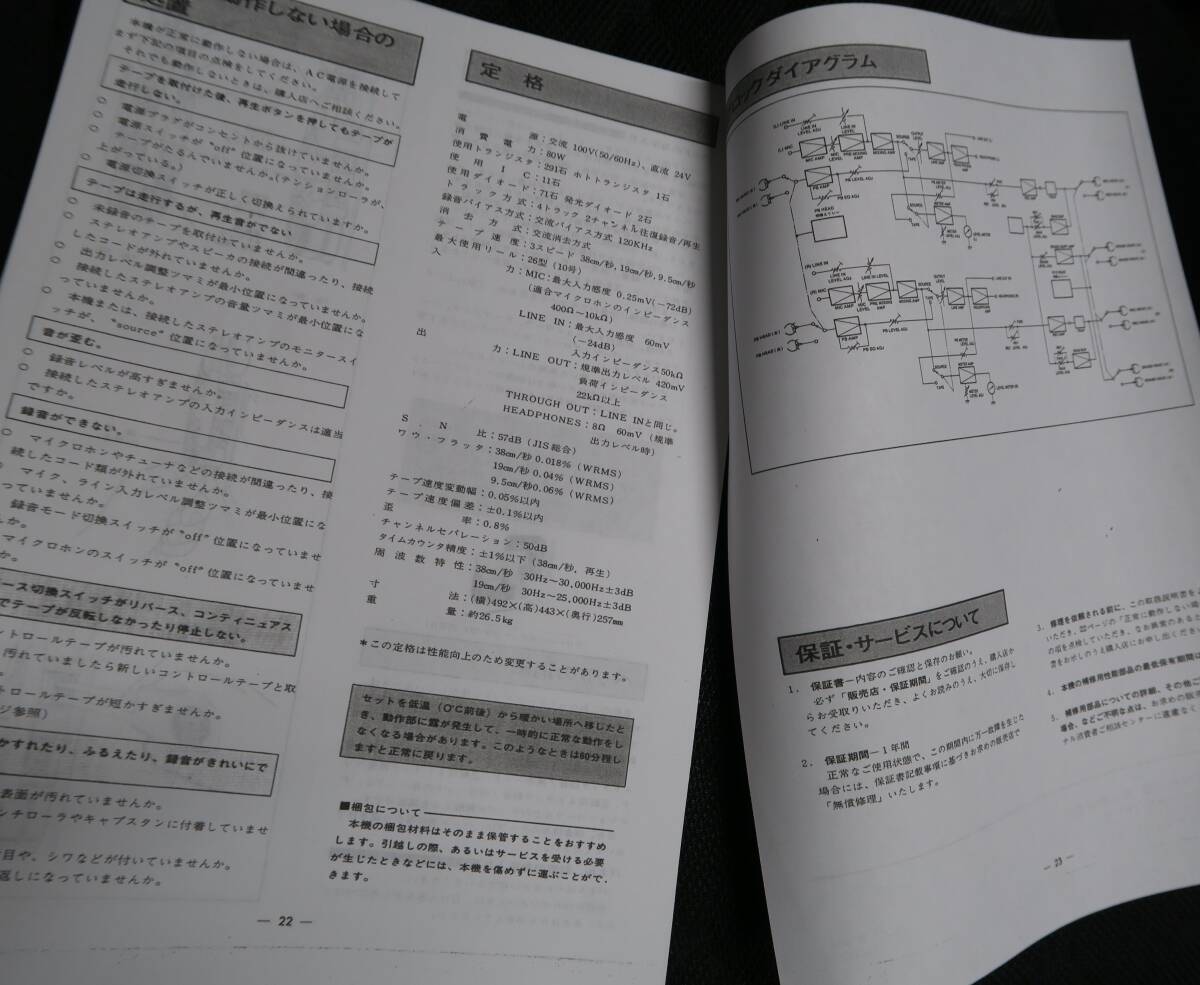 動作しない場合の
処置
本機が正常に動作しない場合は、AC電源を接続して
まず下記の項目の点検をしてください。
それでも動作しないときは、購入店へご相談ください。
テープを取付けた後、再生ボタンを押してもテープが
走行しない。
○ 電源プラグがコンセントから抜けていませんか。
○ 電源スイッチが"off"位置になっていませんか。
○ テープがたるんでいませんか。(テンションローラが、
上がっている。)
○ 電源切換スイッチが正しく切換えられていますか。
テープは走行するが、再生音がでない
○ 未録音のテープを取付けていませんか。
○ ステレオアンプやスピーカの接続が間違ったり、接続
したコードが外れていませんか。
○ 出力レベル調整ツマミが最小位置になっていませんか。
○ 接続したステレオアンプの音量ツマミが最小位置にな
っていませんか。
○ 本機または、接続したステレオアンプのモニタースイ
ッチが、"source"位置になっていませんか。
音が歪む。
○ 録音レベルが高すぎませんか。
○ 接続したステレオアンプの入力インピーダンスは適当
ですか。
録音ができない。
○ マイクロホンやチューナなどの接続が間違ったり、接
続したコード類が外れていませんか。
マイク、ライン入力レベル調整ツマミが最小位置にな
っていませんか。
録音モード切換スイッチが"off"位置になっていませ
んか。
マイクロホンのスイッチが"off"位置になっていませ
か。
ース切換スイッチがリバース、コンティニュアス
でテープが反転しなかったり停止しない。
ントロールテープが汚れていませんか。
汚れていましたら新しいコントロールテープと取
トロールテープが短かすぎませんか。
ジ参照)
かすれたり、ふるえたり、録音がきれいにで
表面が汚れていませんか。
ンチローラやキャプスタンに付着していませ
目や、シワなどが付いていませんか。
返しになっていませんか。
定格
電源:交流 100V(50/60Hz)、直流 24V
消費電力:80W
使用トランジスタ:291石 ホトトランジスタ 1石
使用IC:11石
使用ダイオード:71石 発光ダイオード 2石
トラック方式:4トラック 2チャンネル往復録音/再生
録音バイアス方式:交流バイアス方式 120KHz
消去方式:交流消去方式
テープ速度:3スピード 38cm/秒,19cm/秒,9.5cm/秒
最大使用リール:26型(10号)
入力:MIC:最大入力感度 0.25mV(−72dB)
(適合マイクロホンのインピーダンス
400Ω〜10kΩ)
LINE IN:最大入力感度 60mV
(−24dB)
入力インピーダンス50kΩ
出力:LINE OUT:規準出力レベル 420mV
負荷インピーダンス
22kΩ以上
THROUGH OUT:LINE INと同じ。
HEADPHONES:8Ω 60mV(規準
出力レベル時)
SN比:57dB(JIS総合)
ワウ・フラッタ:38cm/秒 0.018%(WRMS)
19cm/秒 0.04%(WRMS)
9.5cm/秒0.06%(WRMS)
テープ速度変動幅:0.05%以内
テープ速度偏差:±0.1%以内
歪率:0.8%
チャンネルセパレーション:50dB
タイムカウンタ精度:±1%以下(38cm/秒,再生)
周波数特性:38cm/秒 30Hz〜30,000Hz±3dB
19cm/秒 30Hz〜25,000Hz±3dB
寸法:(横)492×(高)443×(奥行)257mm
重量:約26.5kg
*この定格は性能向上のため変更することがあります。
セットを低温(0℃前後)から暖かい場所へ移したと
き、動作部に露が発生して、一時的に正常な動作をし
なくなる場合があります。このようなときは60分程し
ますと正常に戻ります。
■梱包について
本機の梱包材料はそのまま保管することをおすすめ
します。引越しの際、あるいはサービスを受ける必要
が生じたときなどには、本機を傷めずに運ぶことがで
きます。
— 22 —
ックダイアグラム
(L) LINE IN
LINE IN LEVEL ADJ
LINE IN LEVEL
(L) MIC
MIC AMP
MIC LEVEL
PRE MIXING AMP
MIXING AMP
SOURCE
TAPE
OUTPUT LEVEL
LINE AMP
PB AMP
PB LEVEL ADJ
PB EQ ADJ
PB HEAD
(R) LINE IN
LINE IN LEVEL ADJ
LINE IN LEVEL
(R) MIC
MIC AMP
MIC LEVEL
PRE MIXING AMP
MIXING AMP
SOURCE
TAPE
OUTPUT LEVEL
PB AMP
PB LEVEL ADJ
PB EQ ADJ
SOURCE
TAPE
METER AMP
保証・サービスについて
1. 保証書—内容のご確認と保存のお願い。
必ず「販売店・保証期間」をご確認のうえ、購入店か
らお受取りいただき、よくお読みのうえ、大切に保存し
てください。
2. 保証期間—1年間
正常なご使用状態で、この期間内に万一故障を生じた
場合には、保証書記載事項に基づきお求めの販売店で
「無償修理」いたします。
3. 修理を依頼される前に、この取扱説明書をよ
いただき、22ページの「正常に動作しない場
の項を点検していただき、なお異常のあると
書をお示しのうえ購入店にお申し出くださ
4. 本機の補修用性能部品の最低保有期間は
5. 補修用部品についての詳細、その他ご
場合、などご不明な点は、お求めの販
ナル消費者ご相談センターに遠慮なく
— 23 —